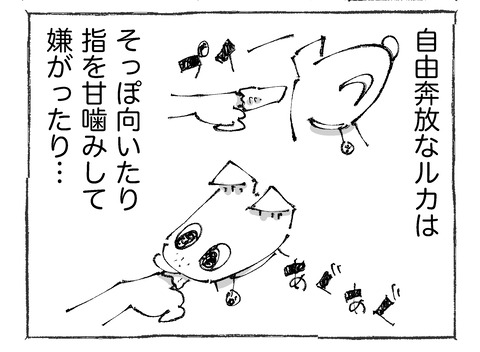 自由奔放なルカは
そっぽ向いたり
指を甘噛みして
嫌がったり…
あぐ
あぐ